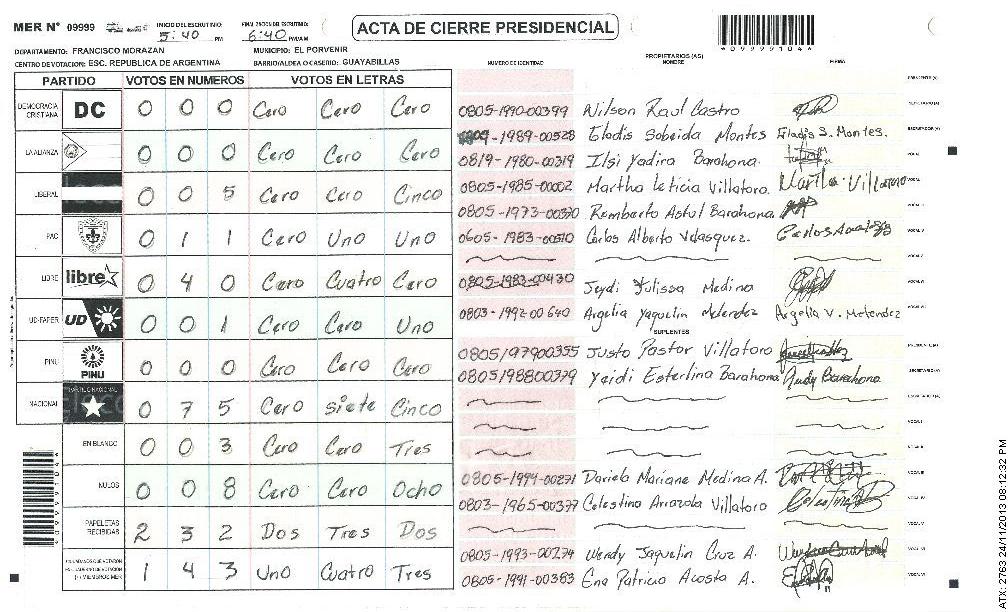 MER Nº 09999 INICIO DEL ESCRUTINIO: 5:40 PM FINALIZACION DEL ESCRUTINIO: 6:40 PM/AM
ACTA DE CIERRE PRESIDENCIAL
*09999104*
DEPARTAMENTO: FRANCISCO MORAZAN MUNICIPIO: EL PORVENIR
CENTRO DE VOTACION: ESC. REPUBLICA DE ARGENTINA BARRIO/ALDEA O CASERIO: GUAYABILLAS
NUMERO DE IDENTIDAD PROPIETARIOS (AS) NOMBRE FIRMA
PARTIDO VOTOS EN NUMEROS VOTOS EN LETRAS
PRESIDENTE (A)
DEMOCRACIA CRISTIANA DC 0 0 0 Cero Cero Cero
LA ALIANZA 0 0 0 Cero Cero Cero
LIBERAL 0 0 5 Cero Cero Cinco
PAC 0 1 1 Cero Uno Uno
LIBRE libre 0 4 0 Cero Cuatro Cero
UD-FAPER UD 0 0 1 Cero Cero Uno
PINU PINU 0 0 0 Cero Cero Cero
NACIONAL 0 7 5 Cero siete Cinco
EN BLANCO 0 0 3 Cero Cero Tres
NULOS 0 0 8 Cero Cero Ocho
PAPELETAS RECIBIDAS 2 3 2 Dos Tres Dos
(+) MIEMBROS MER 1 4 3 Uno Cuatro Tres
0805-1990-00399 Wilson Raul Castro SECRETARIO (A)
-1989-00528 Eladis Sobeida Montes Eladis S. Montes. ESCRUTADOR (A)
0819-1980-00319 Ilsi Yadira Barahona. VOCAL I
0805-1985-00002 Martha Leticia Villatoro. Martha Villatoro
0805-1973-00370 Remberto Astul Barahona
0605-1983-00510 Carlos Alberto Velasquez.
0805-1983-00430 Jeydi Julissa Medina
0803-1992-00640 Argelia Yaquelin Melendez Argelia Y. Melendez
SUPLENTES
0805197900355 Justo Pastor Villatoro PRESIDENTE (A)
0805198800379 Yeidi Esterlina Barahona Barahona SECRETARIO (A)
0805-1994-00271 Dariela Mariane Medina A.
0803-1965-00377 Celestino Arrazola Villatoro
0805-1993-00274 Wendy Jaquelin Cruz A.
0805-1991-00383 Ena Patricia Acosta A.
*09999104*
ATX: 2763 24/11/2013 08:12:32 PM